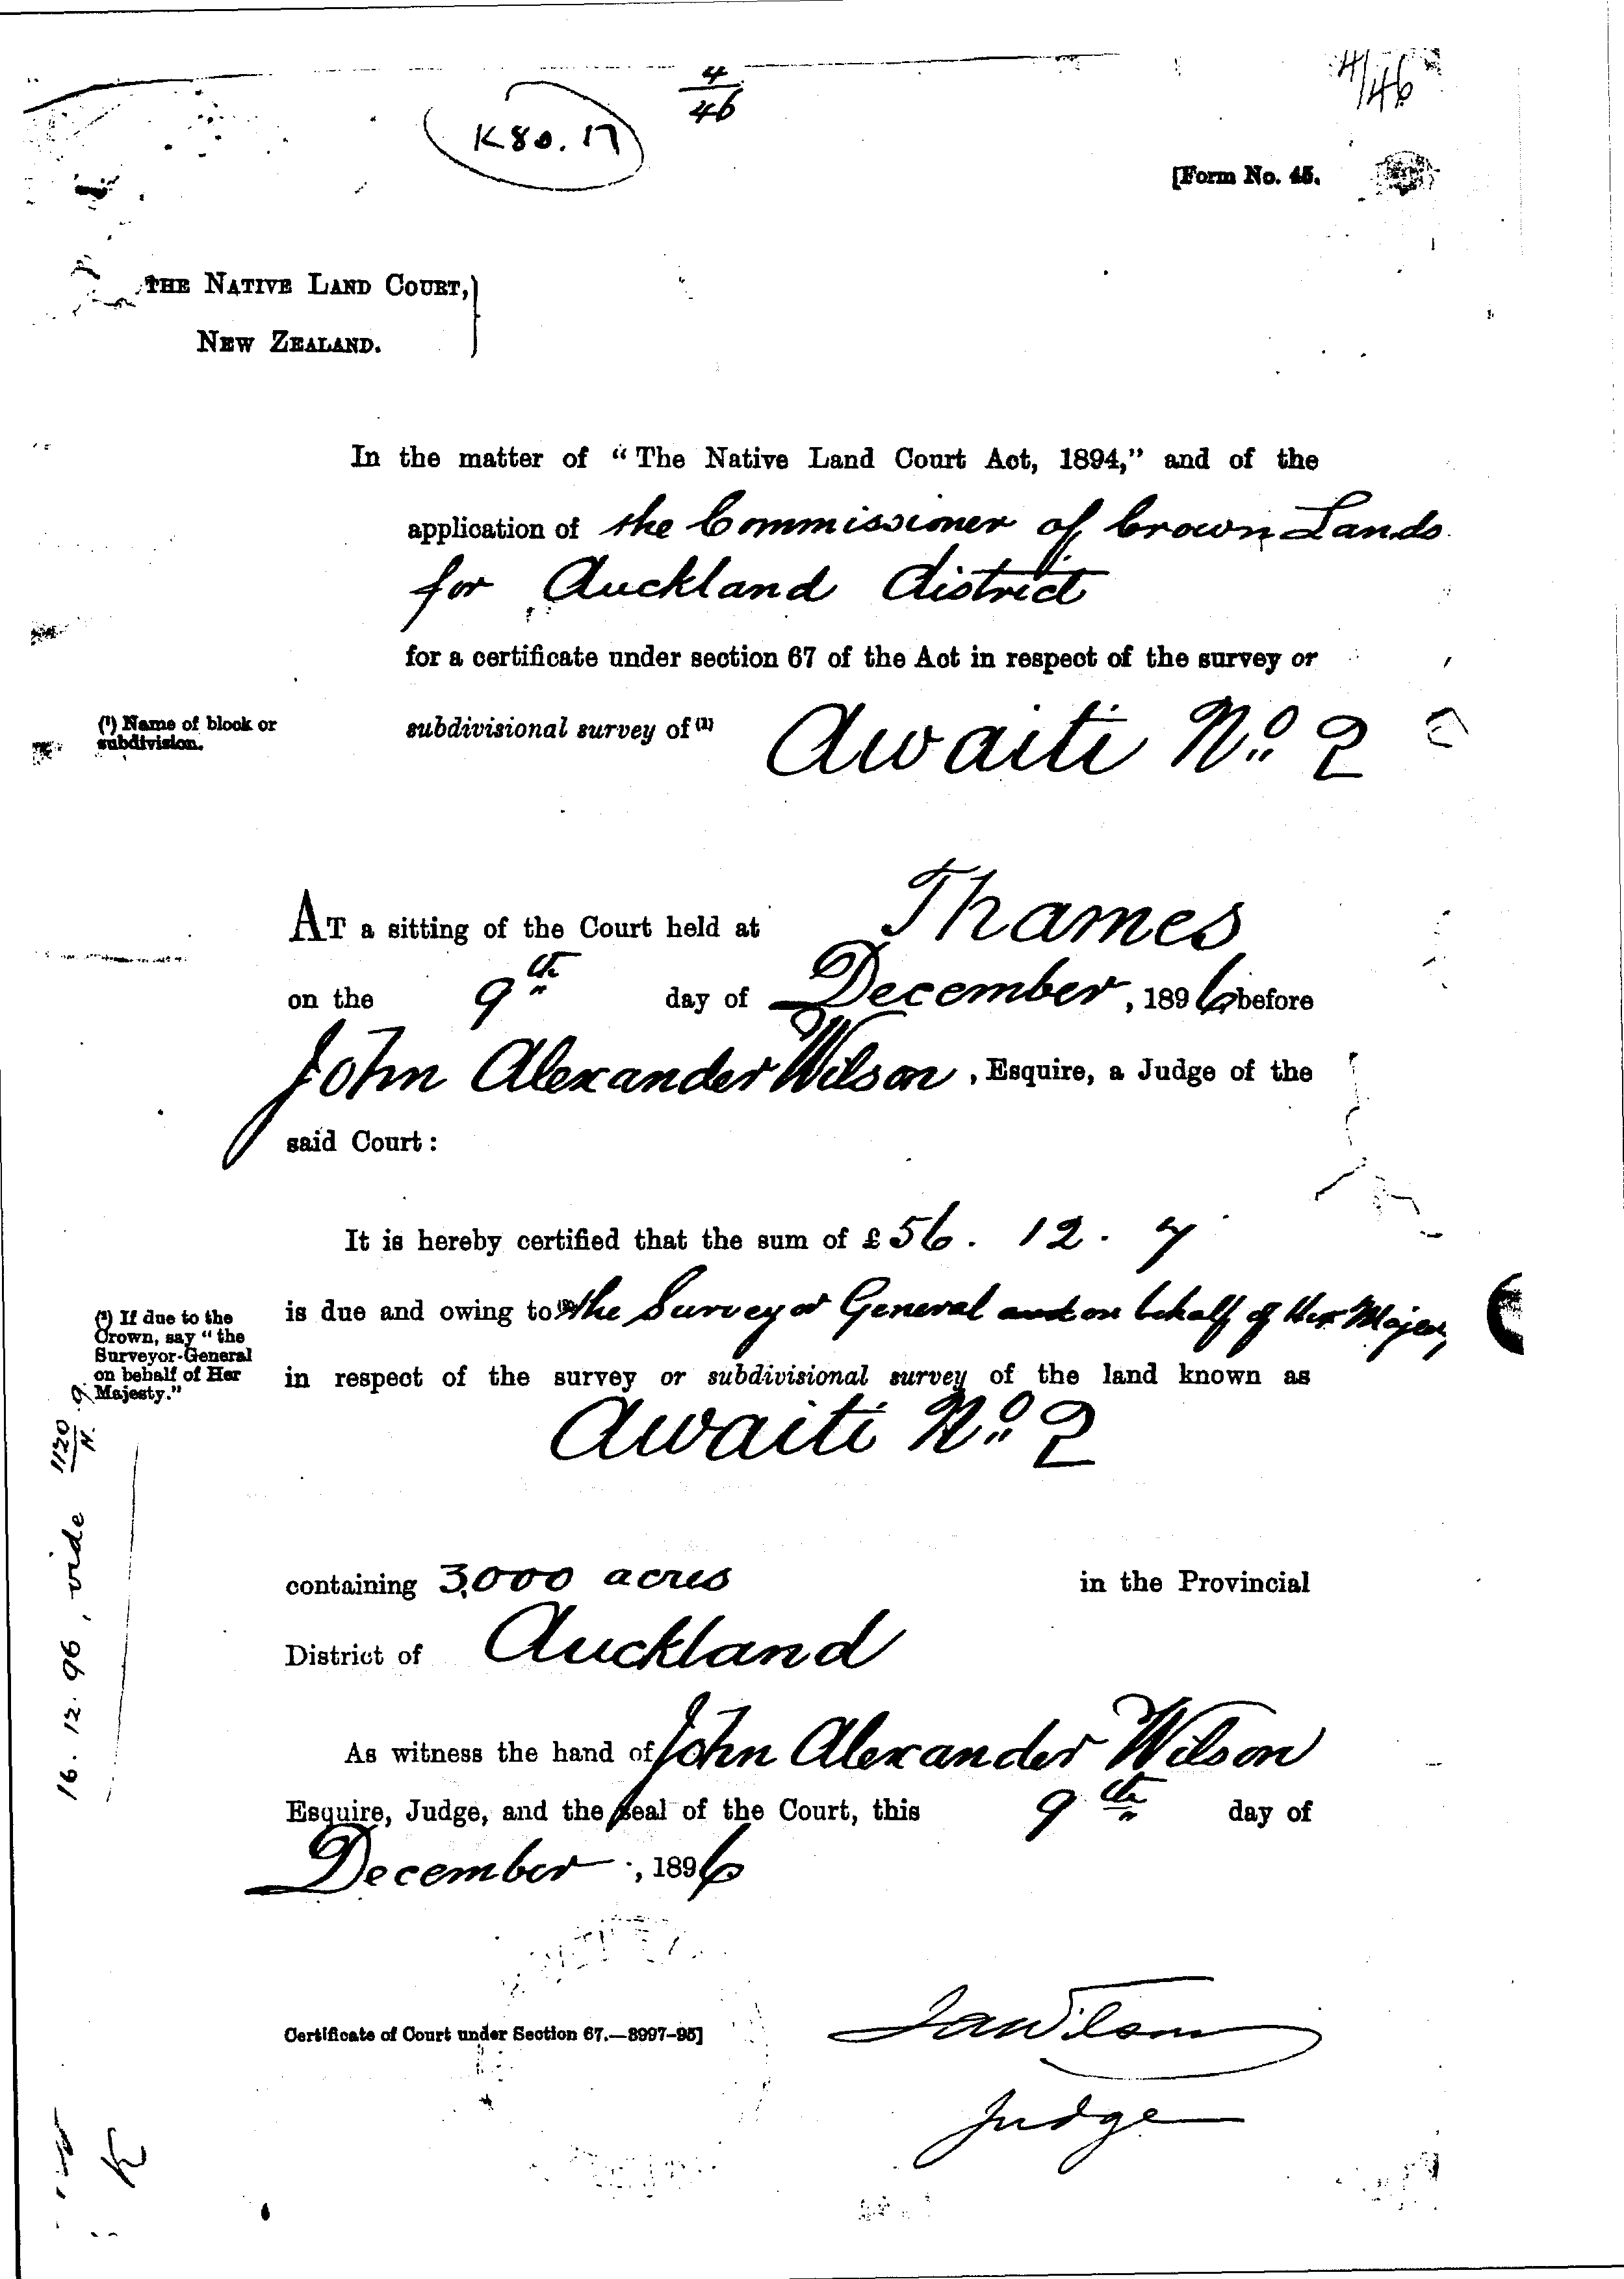 4/46
4/46
K80.17
[Form No. 45.
THE NATIVE LAND COURT,
NEW ZEALAND.
In the matter of "The Native Land Court Act, 1894," and of the
application of the Commissioner of Crown Lands
for Auckland district
for a certificate under section 67 of the Act in respect of the survey or
(1) Name of block or
subdivision.
subdivisional survey of (1) Awaiti No. 2
AT a sitting of the Court held at Thames
on the 9th day of December, 1896 before
John Alexander Wilson, Esquire, a Judge of the
said Court:
It is hereby certified that the sum of £56. 12. 7
(2) If due to the
Crown, say "the
Surveyor-General
on behalf of Her
Majesty."
is due and owing to (2) the Surveyor General on behalf of Her Majesty
in respect of the survey or subdivisional survey of the land known as
Awaiti No. 2
containing 3,000 acres in the Provincial
District of Auckland
16.12.96, vide 1120/N. 9.
As witness the hand of John Alexander Wilson
Esquire, Judge, and the seal of the Court, this 9th day of
December, 1896
Certificate of Court under Section 67.—8997-95]
JAWilson
Judge
K